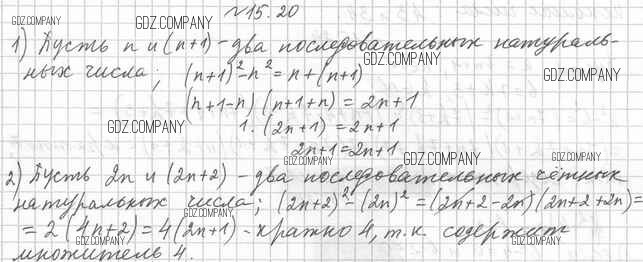 №15.20
1) Пусть n и (n+1) - два последовательных натураль-
ных числа; (n+1)²-n² = n+(n+1)
(n+1-n)(n+1+n) = 2n+1
1·(2n+1) = 2n+1
2n+1=2n+1
2) Пусть 2n и (2n+2) - два последовательных чётных
натуральных числа; (2n+2)²-(2n)² = (2n+2-2n)(2n+2+2n)=
=2(4n+2)=4(2n+1) - кратно 4, т.к. содержит
множитель 4.
GDZ.COMPANY
GDZ.COMPANY
GDZ.COMPANY
GDZ.COMPANY
GDZ.COMPANY
GDZ.COMPANY
GDZ.COMPANY
GDZ.COMPANY
GDZ.COMPANY
GDZ.COMPANY
GDZ.COMPANY